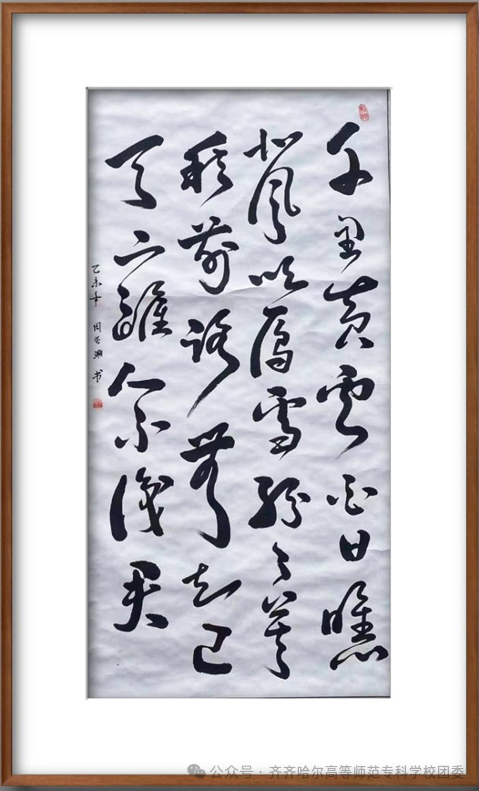 千里黄云白日曛
北风吹雁雪纷々莫
愁前路無知己
天下誰人不識君
乙未年 周 书
公众号 · 齐齐哈尔高等师范专科学校团委